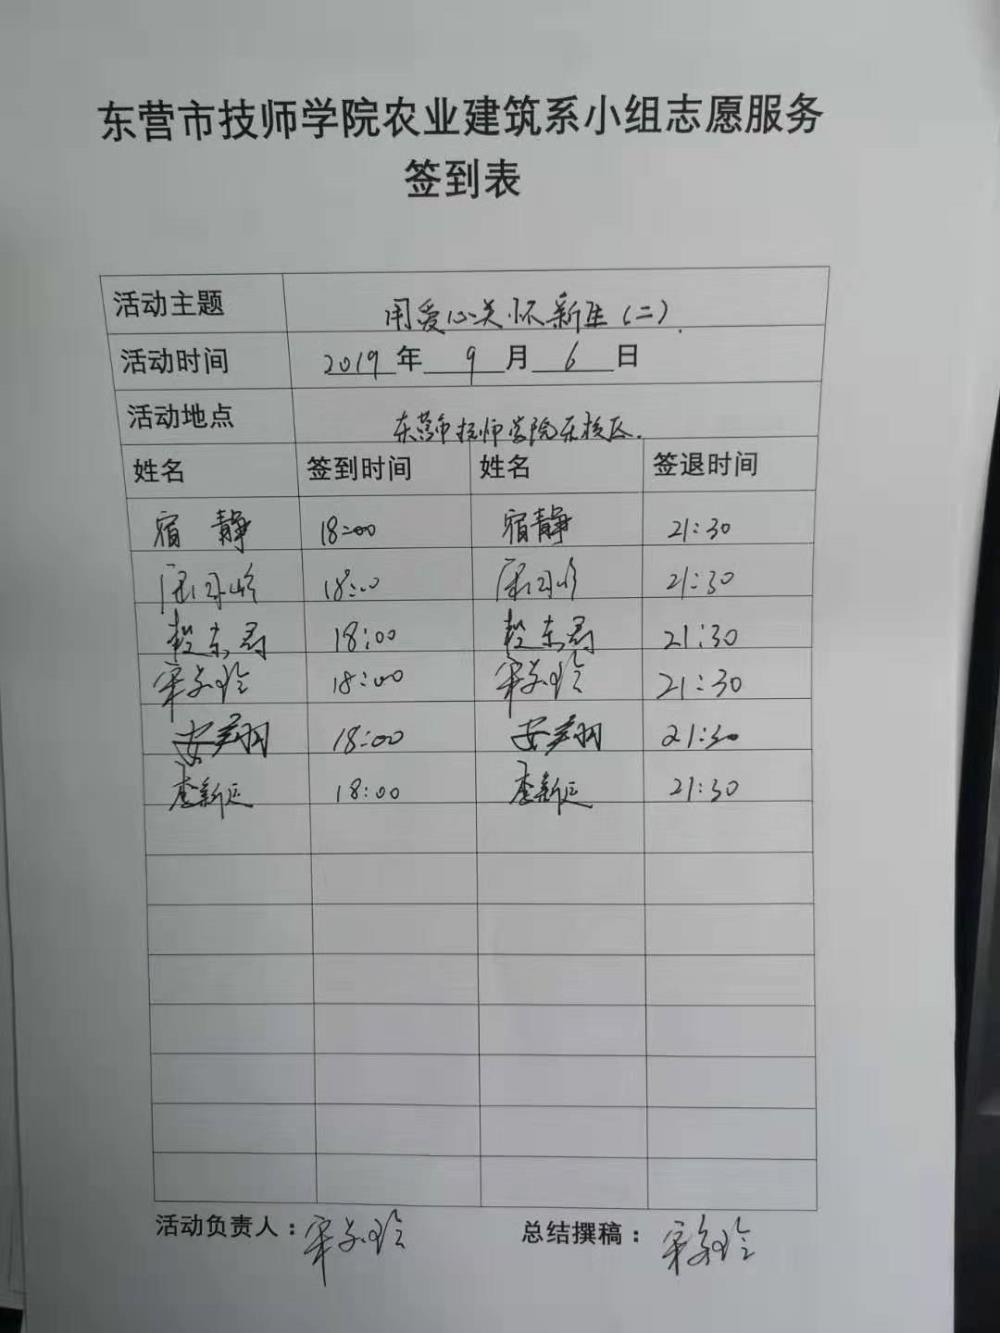 东营市技师学院农业建筑系小组志愿服务
签到表
活动主题 用爱心关怀新生(二).
活动时间 2019年 9 月 6 日
活动地点 东营市技师学院东校区.
姓名 签到时间 姓名 签退时间
宿静 18:00 宿静 21:30
18:00 21:30
东君 18:00 东君 21:30
18:00 21:30
安翔 18:00 安翔 21:30
李新廷 18:00 李新廷 21:30
活动负责人: 总结撰稿: